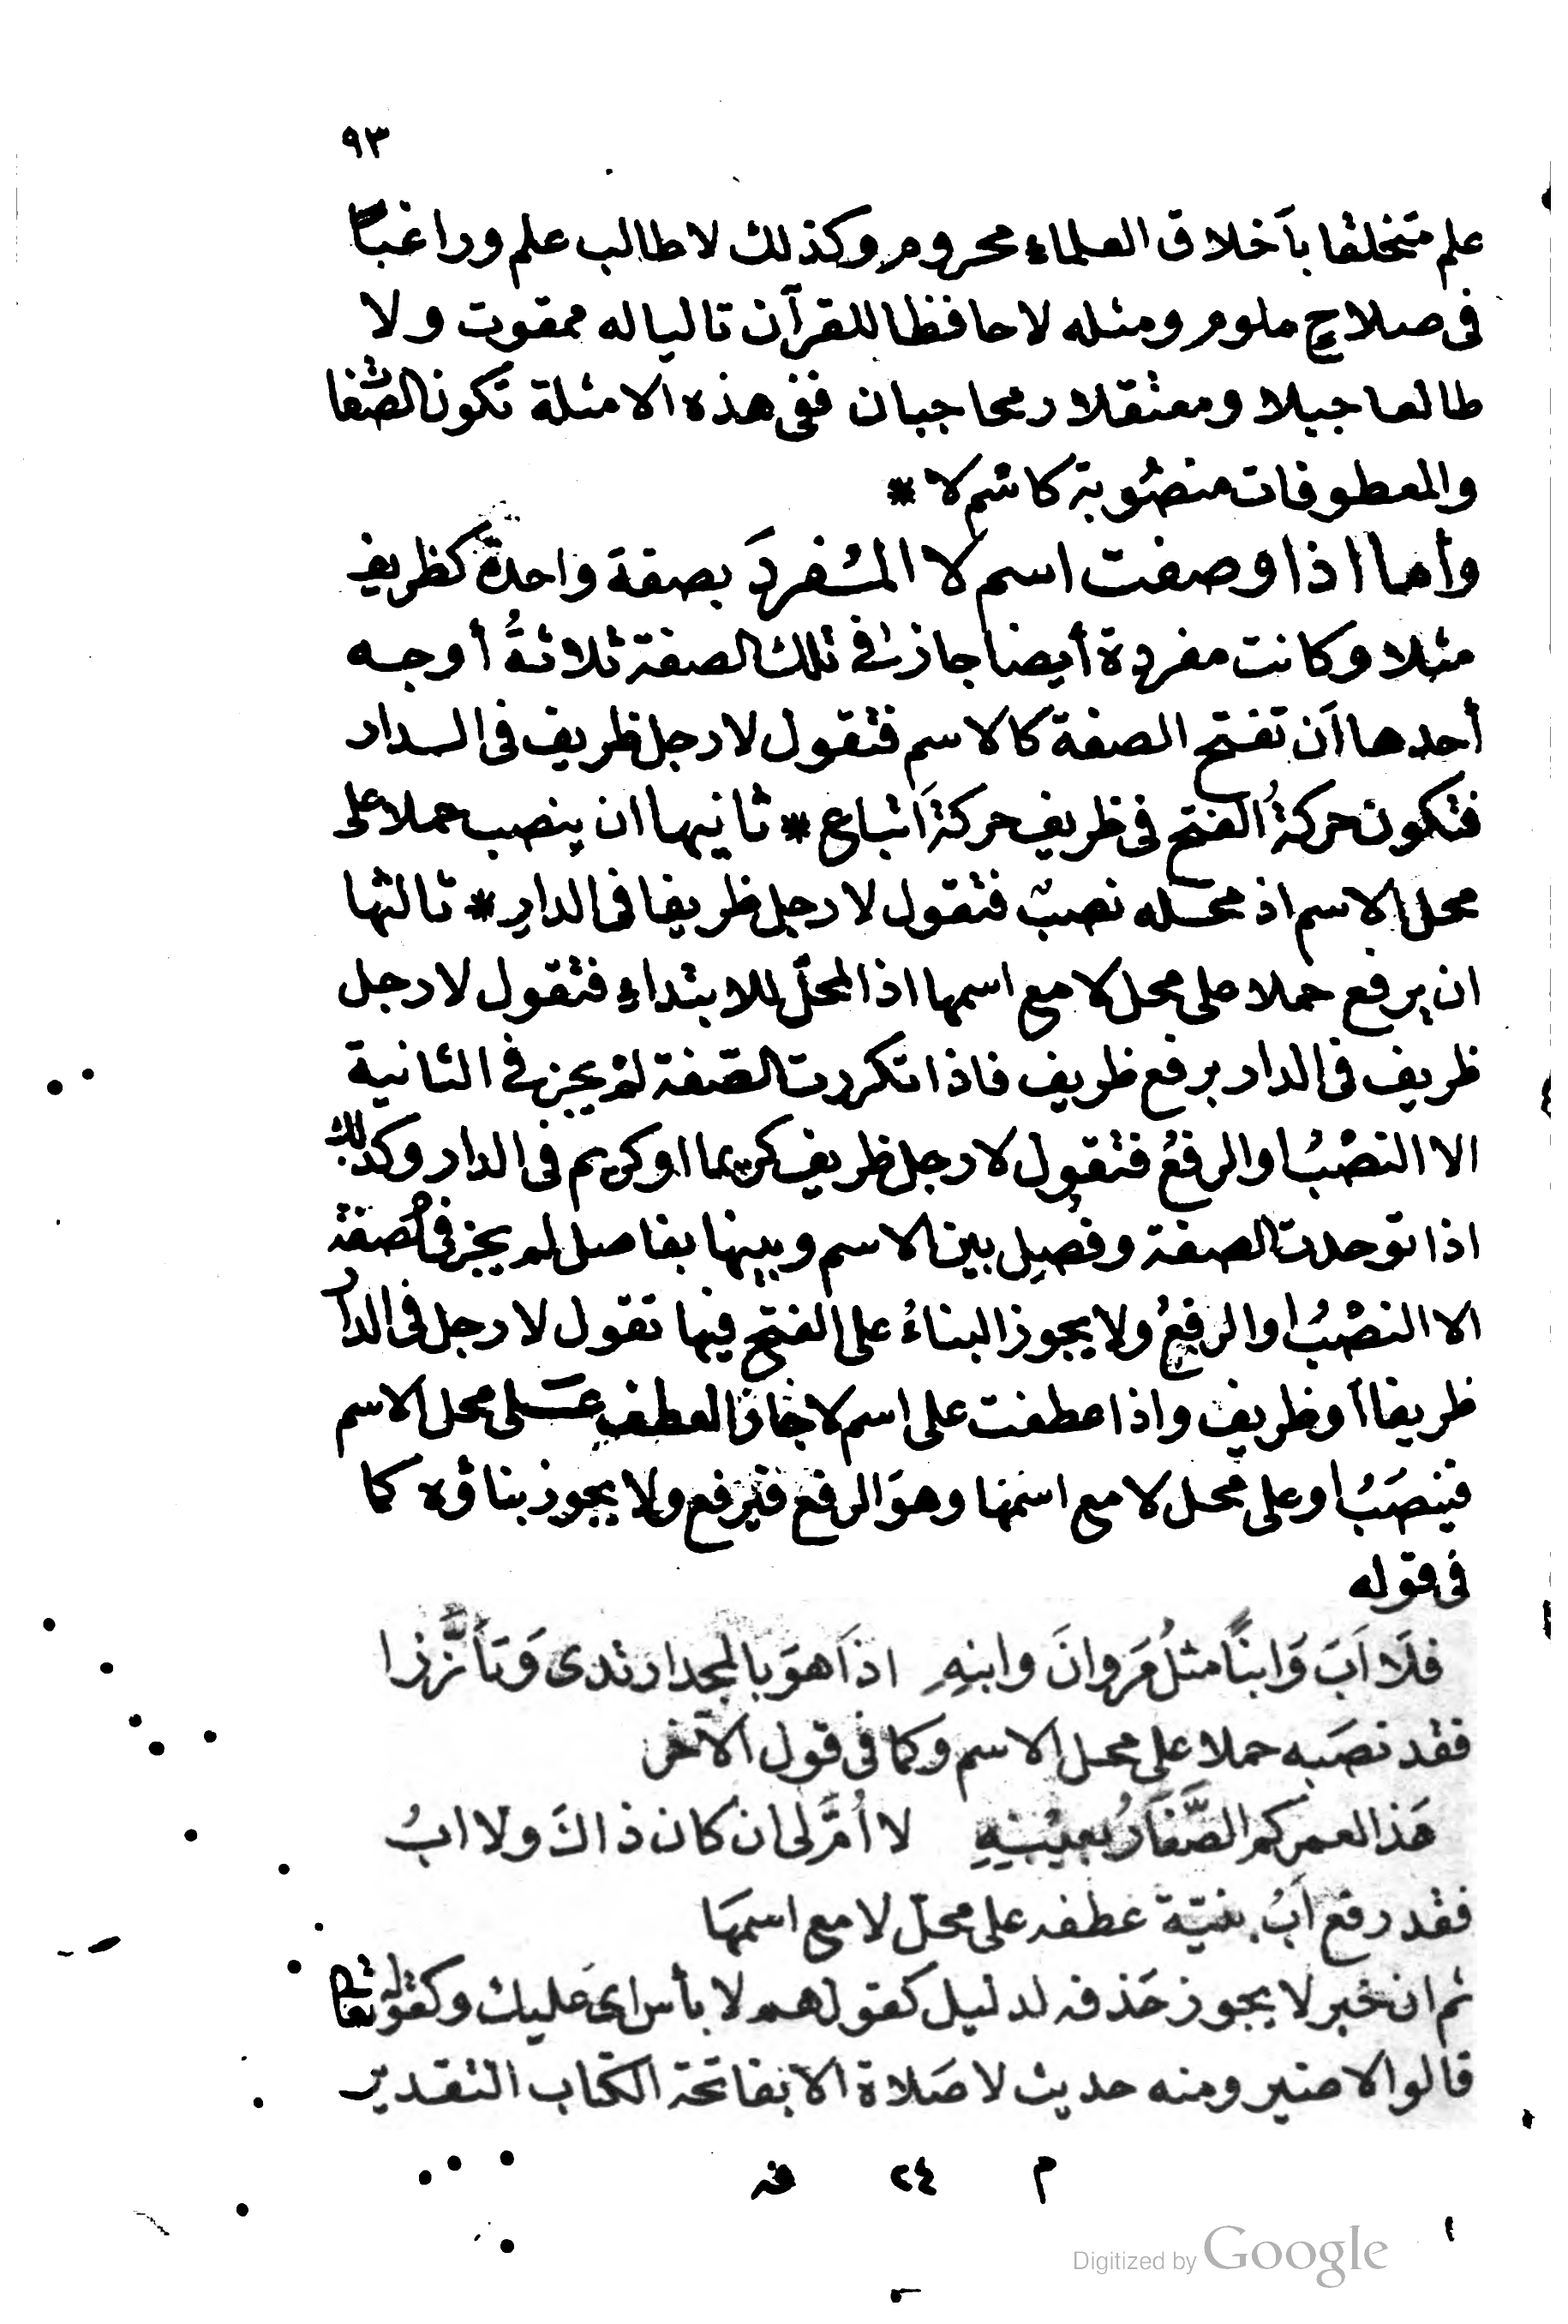 ٩٣
علم متخلقا بأخلاق العلماء محروم وكذلك لا طالب علم وراغبًا
فى صلاحٍ ملوم ومثله لا حافظا للقرآن تاليا له ممقوت ولا
طالعا جبلا ومعتقلا رمحا جبان ففى هذه الامثلة تكون الصّفات
والمعطوفات منصُوبة كاسْم لا *
وأما اذا وصفت اسم لا المُفردَ بصفةَ واحدةٍ كظريف
مثلا وكانت مفردة أيضا جاز لك فى تلك الصفة ثلاثةُ أوجه
أحدها اَن تفتح الصفة كالاسم فتقول لا رجل ظريف فى الدار
فتكون حركةُ الفتح فى ظريف حركةَ اَتباع * ثانيها ان ينصب حملا على
محل الاسم اذ محله نصبٌ فتقول لا رجل ظريفا فى الدارِ * ثالثها
ان يرفع حملا على محل لا مع اسمها اذ المحلّ للابتداءِ فتقول لا رجل
ظريف فى الدار برفع ظريف فاذا تكررت الصّفة لمْ يجز فى الثانية
الا النصْبُ او الرفعُ فتقول لا رجل ظريف كريما او كريم فى الدار وكذلك
اذا توحدت الصفة وفُصِل بين الاسم وبينها بفاصل لم يجز فى الصفة
الا النصْبُ او الرفعُ ولا يجوز البناءُ على الفتح فيها تقول لا رجل فى الدار
ظريفا أو ظريف واذا عطفت على اسم لا جاز العطف على محل الاسم
فينصَبُ او على محل لا مع اسمها وهوَ الرفع فيرفع ولا يجوز بناؤه كما
فى قوله
فلَا اَبَ وَابنًا مثلُ مَروانَ وابنهِ اذَا هوَ بالمجد ارتدى وَتأَزَّرا
فقد نصَبه حملا على محل الاسم وكما فى قول الآخر
هَذا لعمركم الصَّغَارُ بعيْنهِ لا اُمَّ لى ان كان ذاكَ ولا ابُ
فقد رفع اَبُ بنيّة عطفه على محلّ لا مع اسمهَا
ثم ان خبر لا يجوز حَذفه لدليل كقولهم لا بأس اى عَليك وكقوله تعالى
قالوا لا ضير ومنه حديث لا صَلاة الا بفاتحة الكتاب التقدير
م ٢٤ فه
Digitized by Google